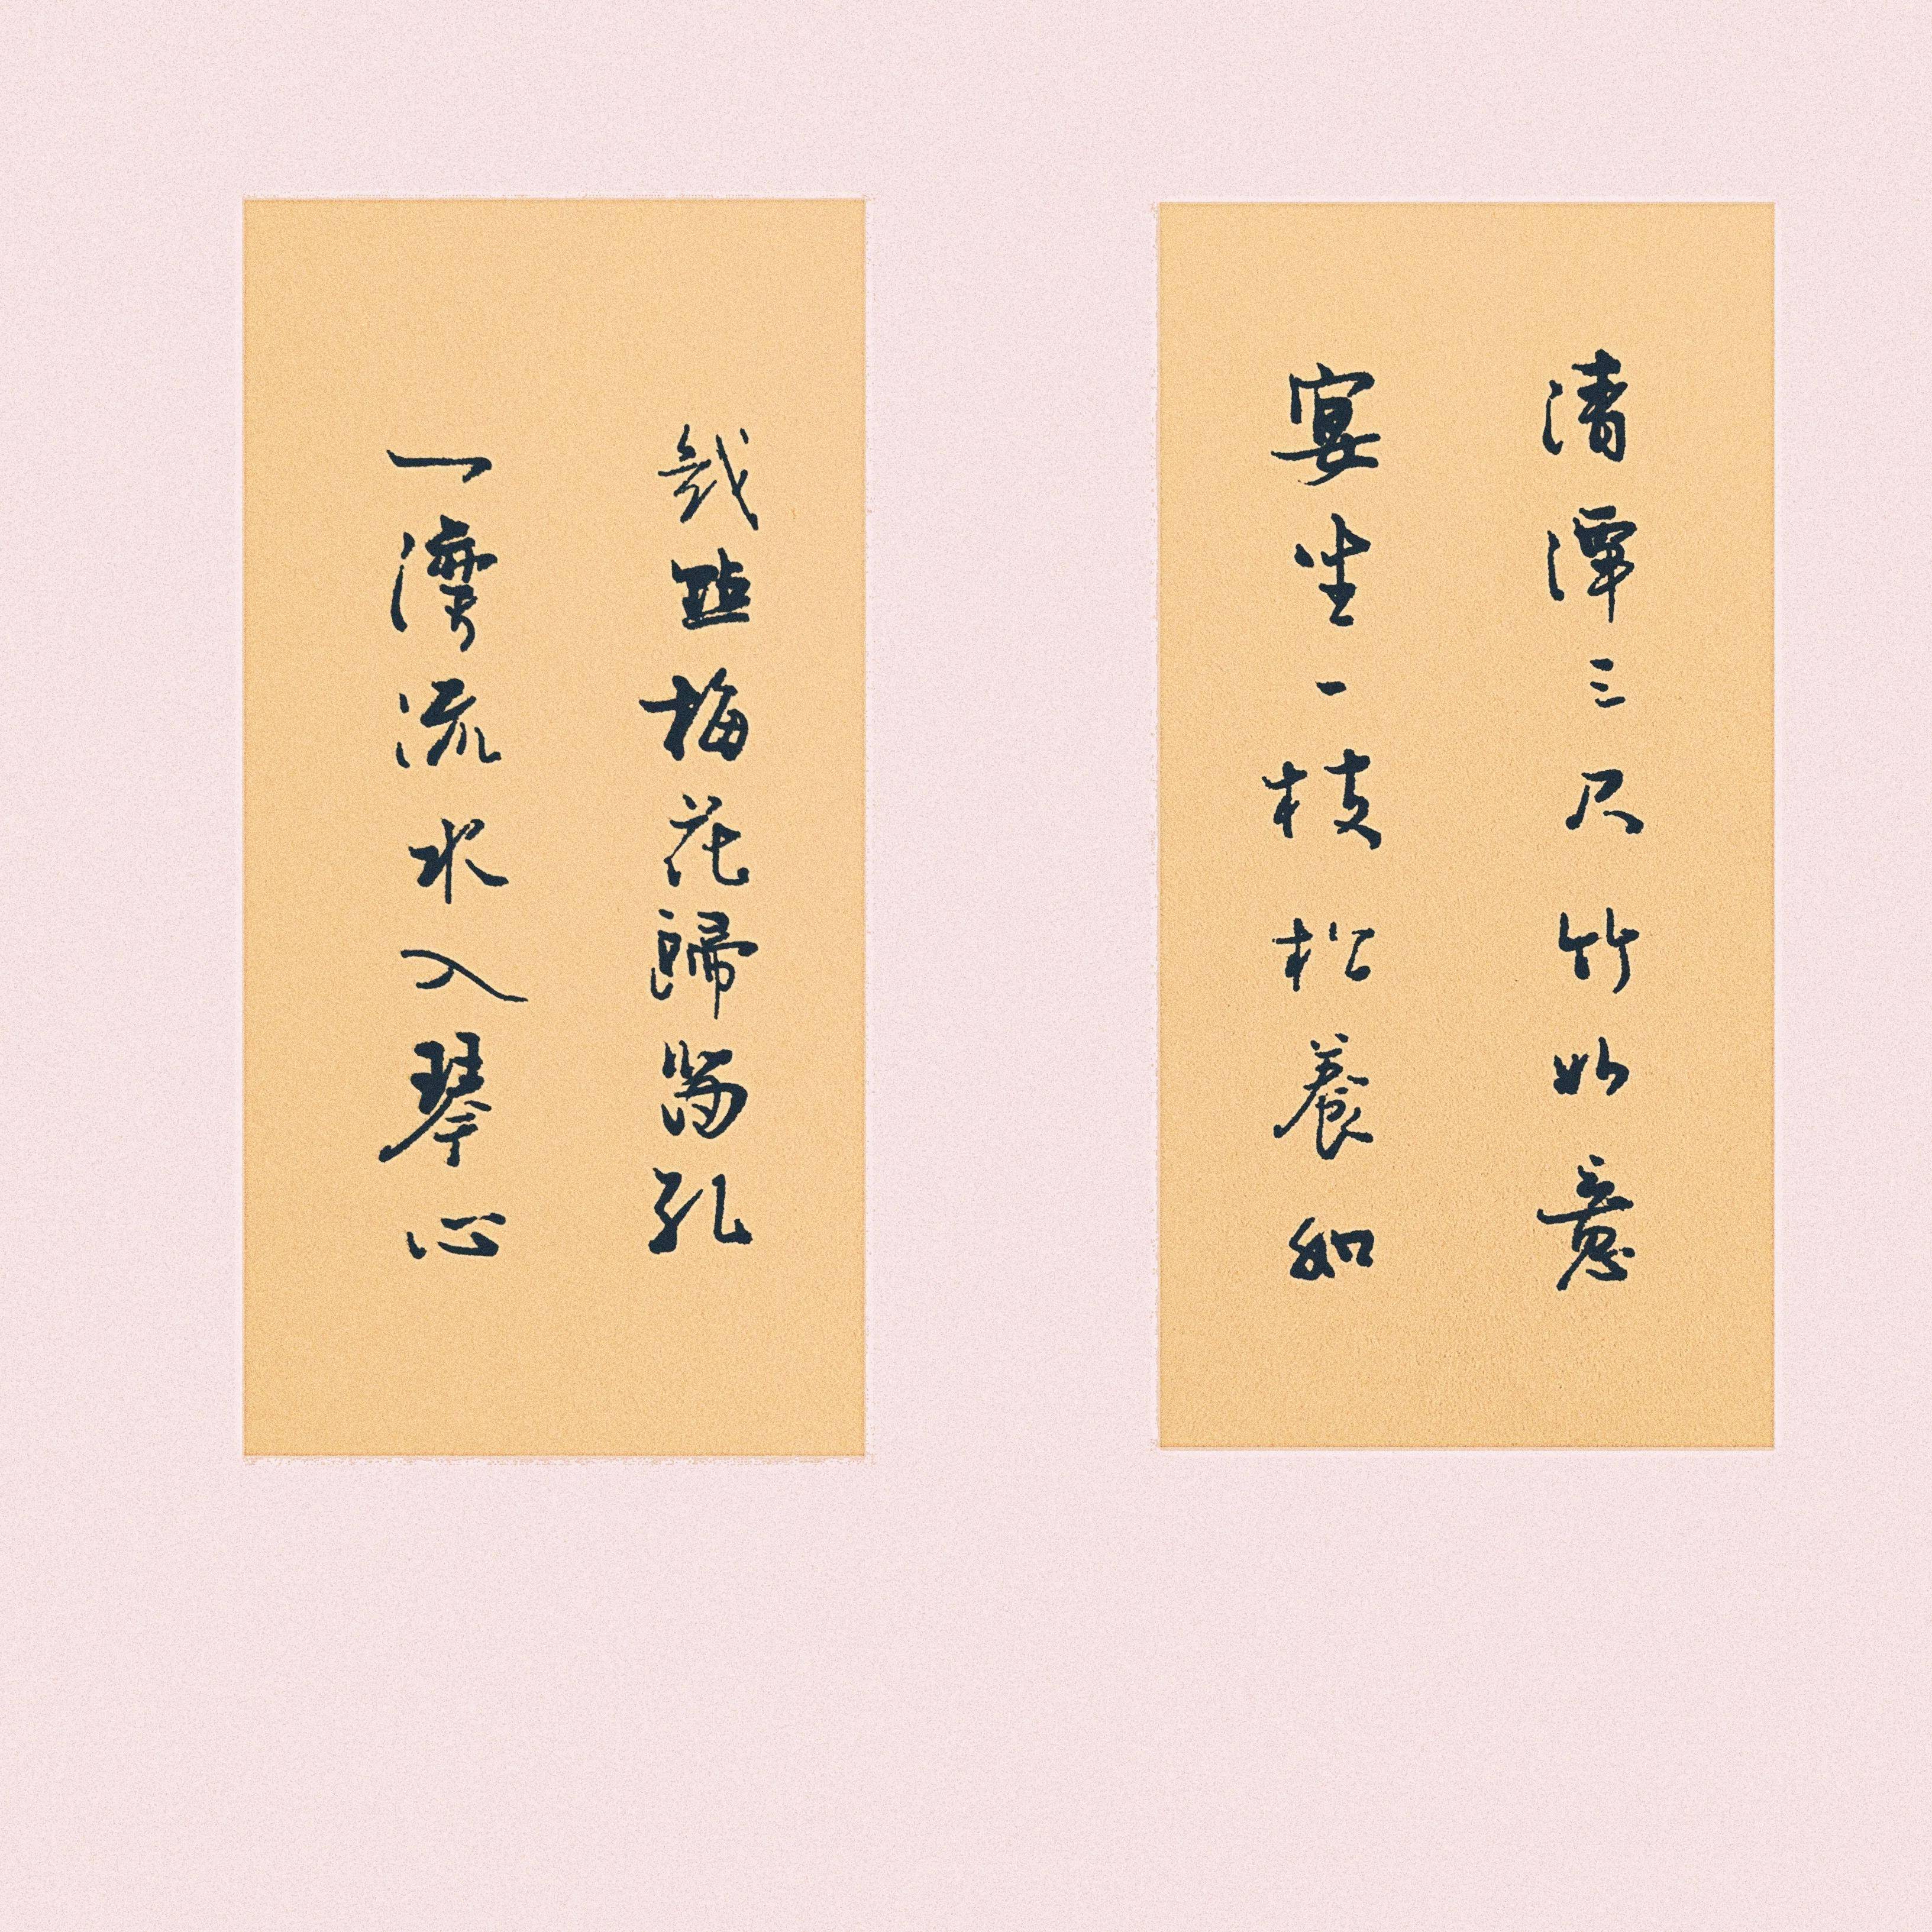 清潭三尺竹如意
宴坐一枝松養和
幾點梅花歸笛孔
一灣流水入琴心